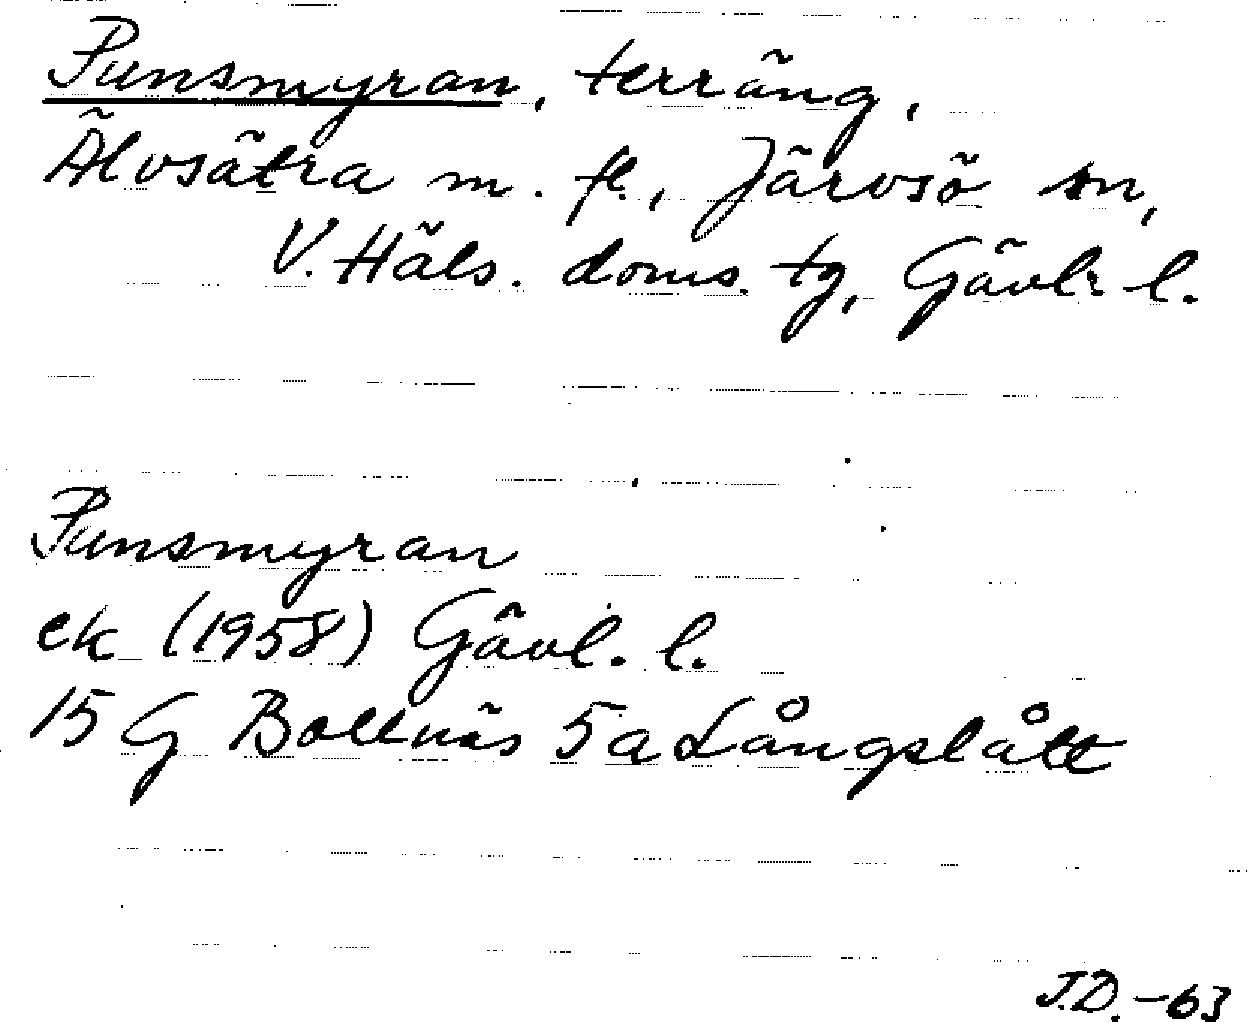 Punsmyran, terräng,
Älvsätra m. fl., Järvsö sn,
V. Häls. doms. tg, Gävl. l.
Punsmyran
ek (1958) Gävl. l.
15 G Bollnäs 5a Långslått
J.D. -63